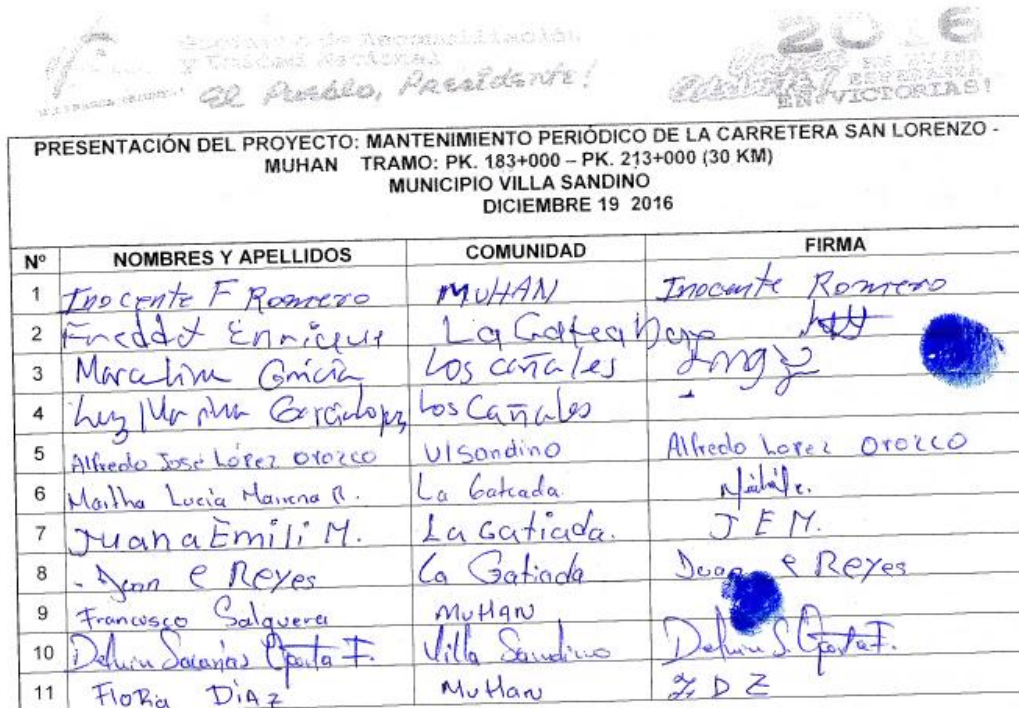 Gobierno de Reconciliación
y Unidad Nacional
El Pueblo, Presidente!
2016
EN VICTORIAS!
PRESENTACIÓN DEL PROYECTO: MANTENIMIENTO PERIÓDICO DE LA CARRETERA SAN LORENZO -
MUHAN TRAMO: PK. 183+000 – PK. 213+000 (30 KM)
MUNICIPIO VILLA SANDINO
DICIEMBRE 19 2016
Nº NOMBRES Y APELLIDOS COMUNIDAD FIRMA
1 Inocente F Romero MUHAN Inocente Romero
2 Freddy Enrique La Gatea Bajo
3 Marcelina García Los cañales
4 Luz Marina García López Los Cañales
5 Alfredo José López Orozco V/Sandino Alfredo López Orozco
6 Martha Lucía Mairena R. La Gateada
7 Juana Emili M. La Gatiada. J E M.
8 Juan e Reyes La Gatiada Juan e Reyes
9 Francisco Salguera MUHAN
10 Delvin Sacarías F. Villa Sandino Delvin S.
11 Floria Diaz Muhan F D Z